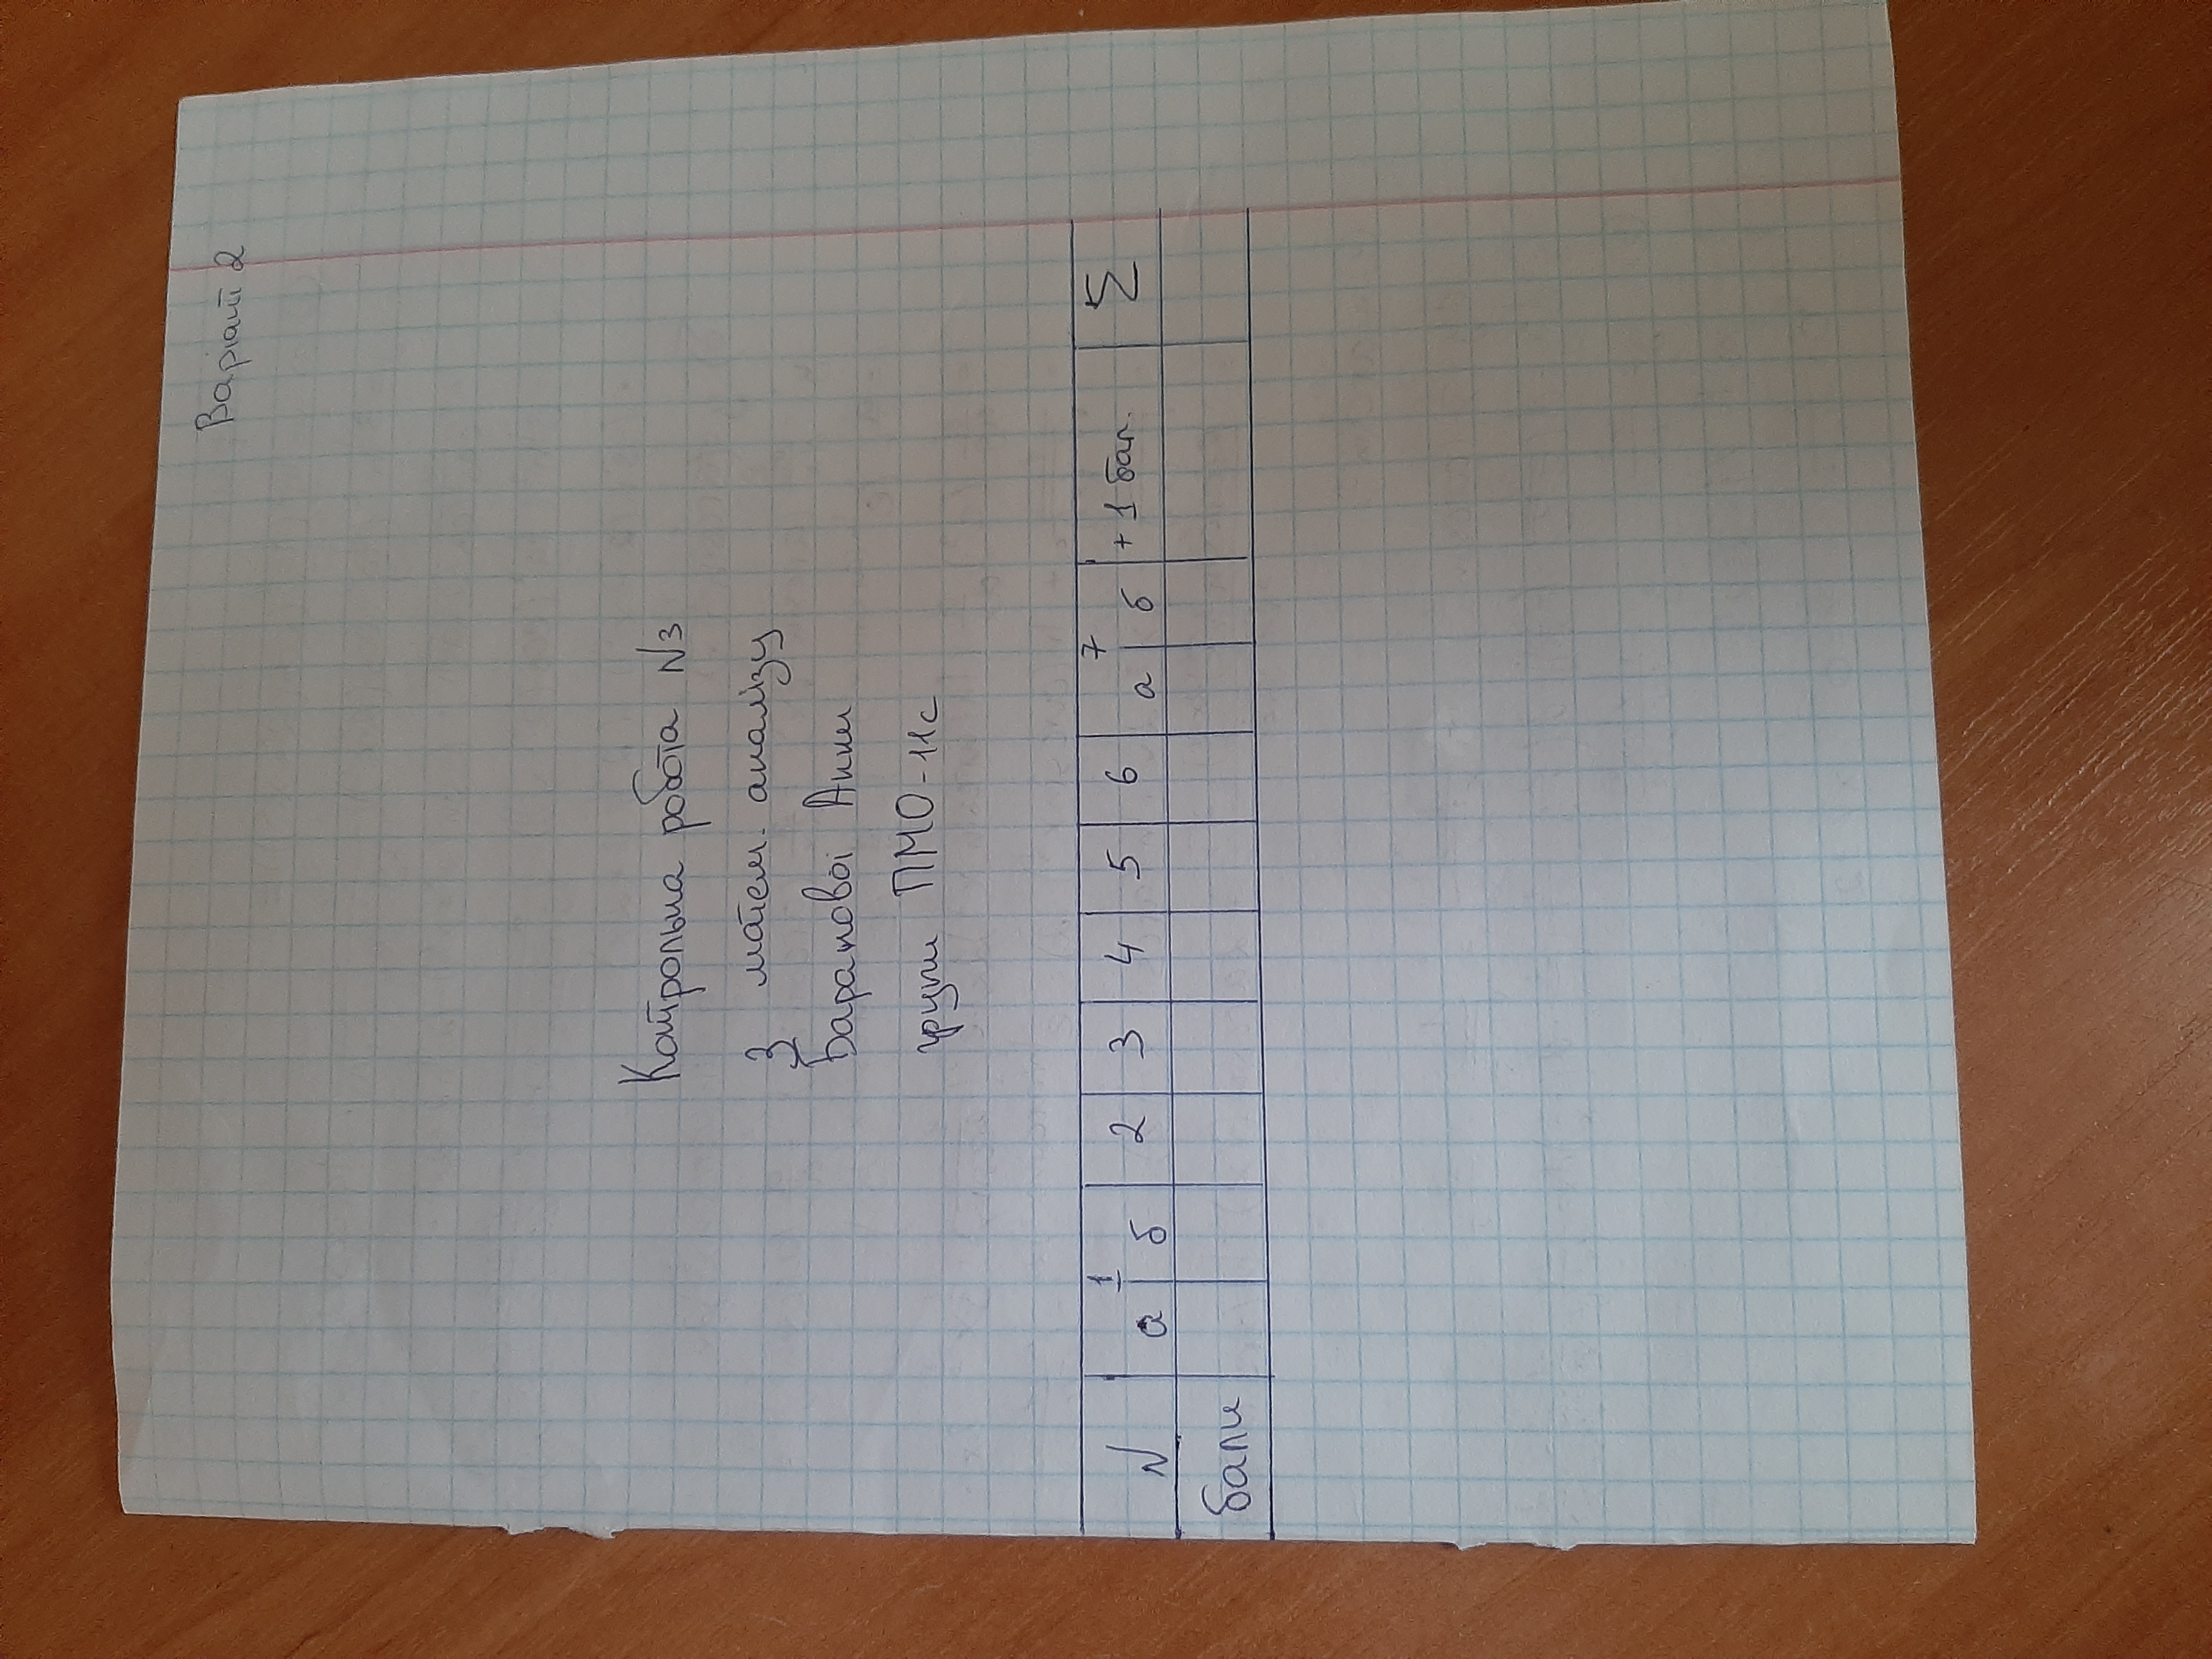 Варіант 2
Контрольна робота №3
з матем. аналізу
Баранової Анни
групи ПМО-11с
N 1 2 3 4 5 6 7 + 1 бал. Σ
а б а б
бали